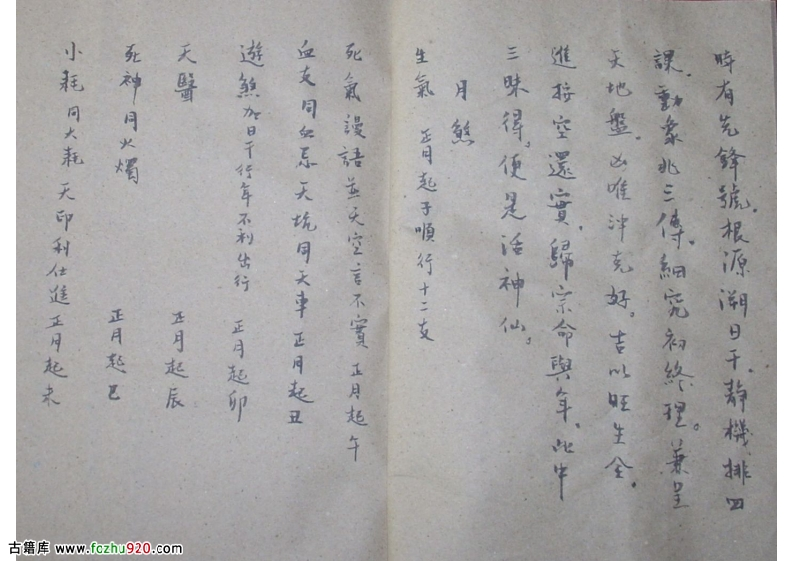 時有先鋒號。根源溯日干。靜機排四
課。動象兆三傳。細究初終理。兼呈
天地盤。凶唯沖克好。吉以旺生全。
進拆空還實。歸宗命與年。此中
三昧得。便是活神仙。
月煞
生氣 正月起子順行十二支
死氣謾語並天空言不實 正月起午
血支同血忌 天坑同天車 正月起丑
遊煞加日干行年不利出行 正月起卯
天醫 正月起辰
死神同火燭 正月起巳
小耗同大耗 天印利仕進 正月起未
古籍库 www.fozhu920.com